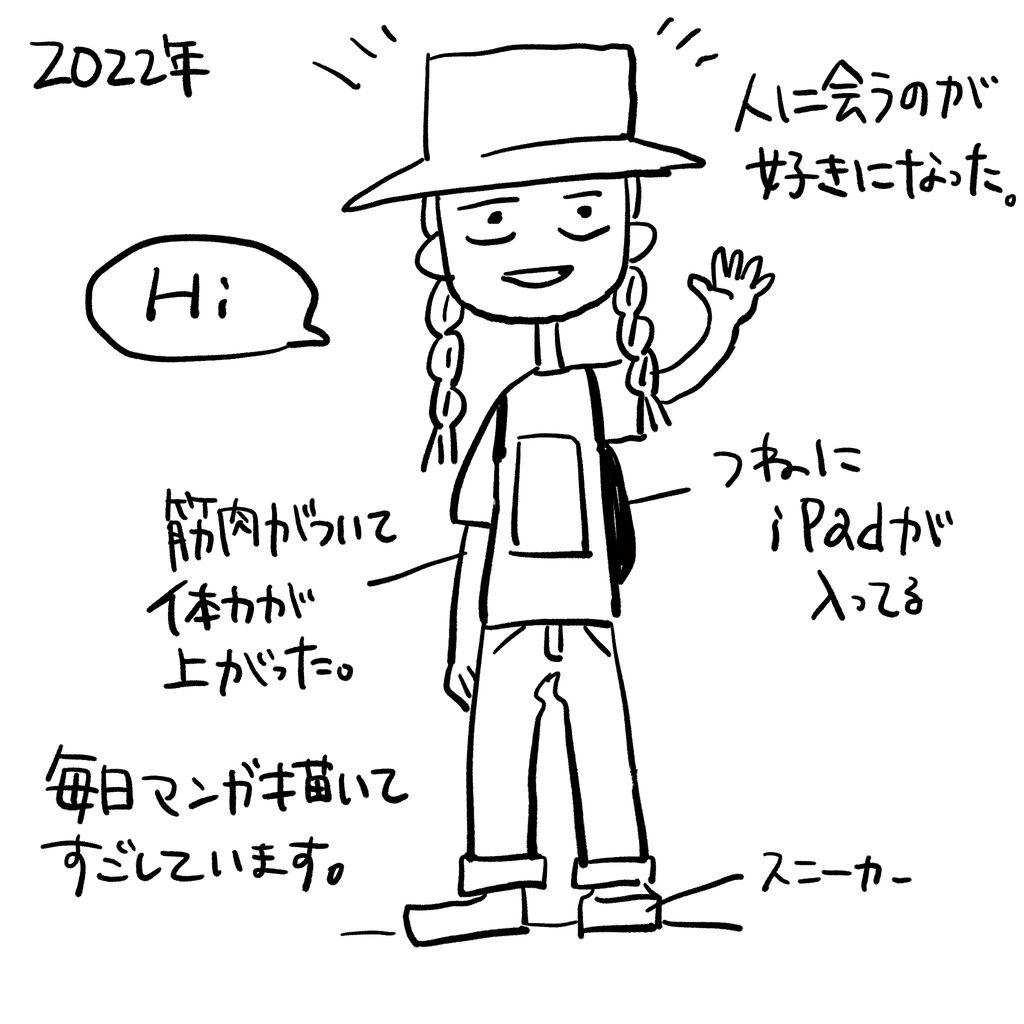 2022年
人に会うのが
好きになった。
Hi
つねに
iPadが
入ってる
筋肉がついて
体力が
上がった。
毎日マンガ描いて
すごしています。
スニーカー